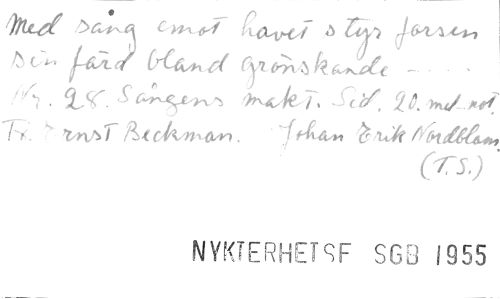 Med sång emot havet styr forsen
sin färd bland grönskande - - - -
Nr. 28. Sångens makt. Sid. 20. med not.
Fr. Ernst Beckman. Johan Erik Nordblom.
(T.S.)
NYKTERHETSF SGB 1955